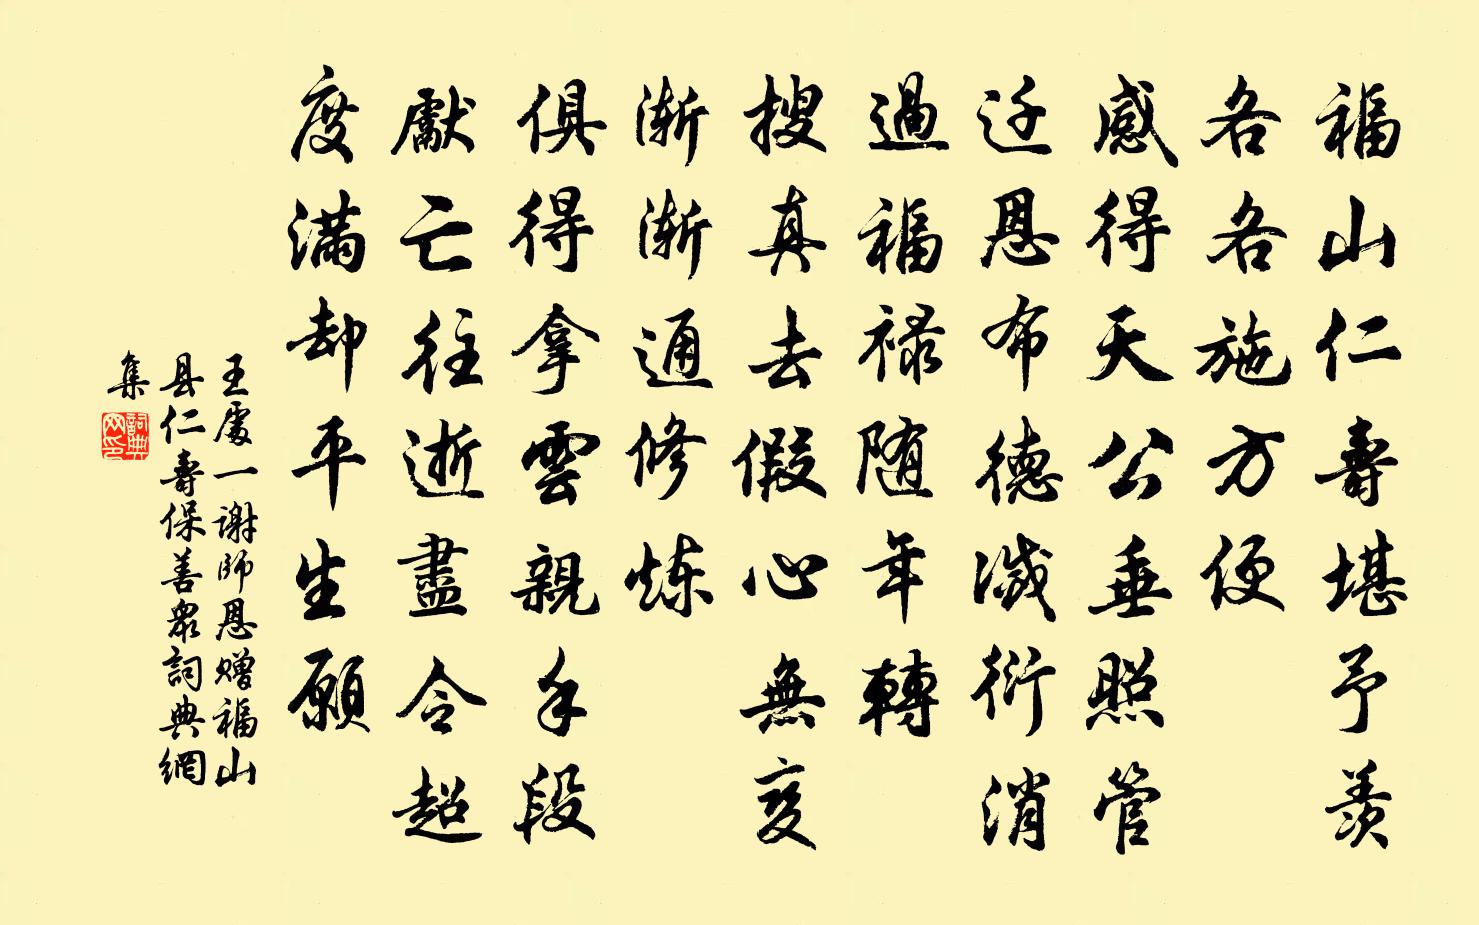 福山仁壽堪予羨
各各施方便
感得天公垂照管
迁恩布德滅衍消
過福禄随年轉
搜真去假心無变
渐渐通修炼
俱得拿雲親手段
獻亡往逝盡令超
度满却平生願
王處一谢師恩赠福山
县仁壽保善眾詞典網
集
詞典网印